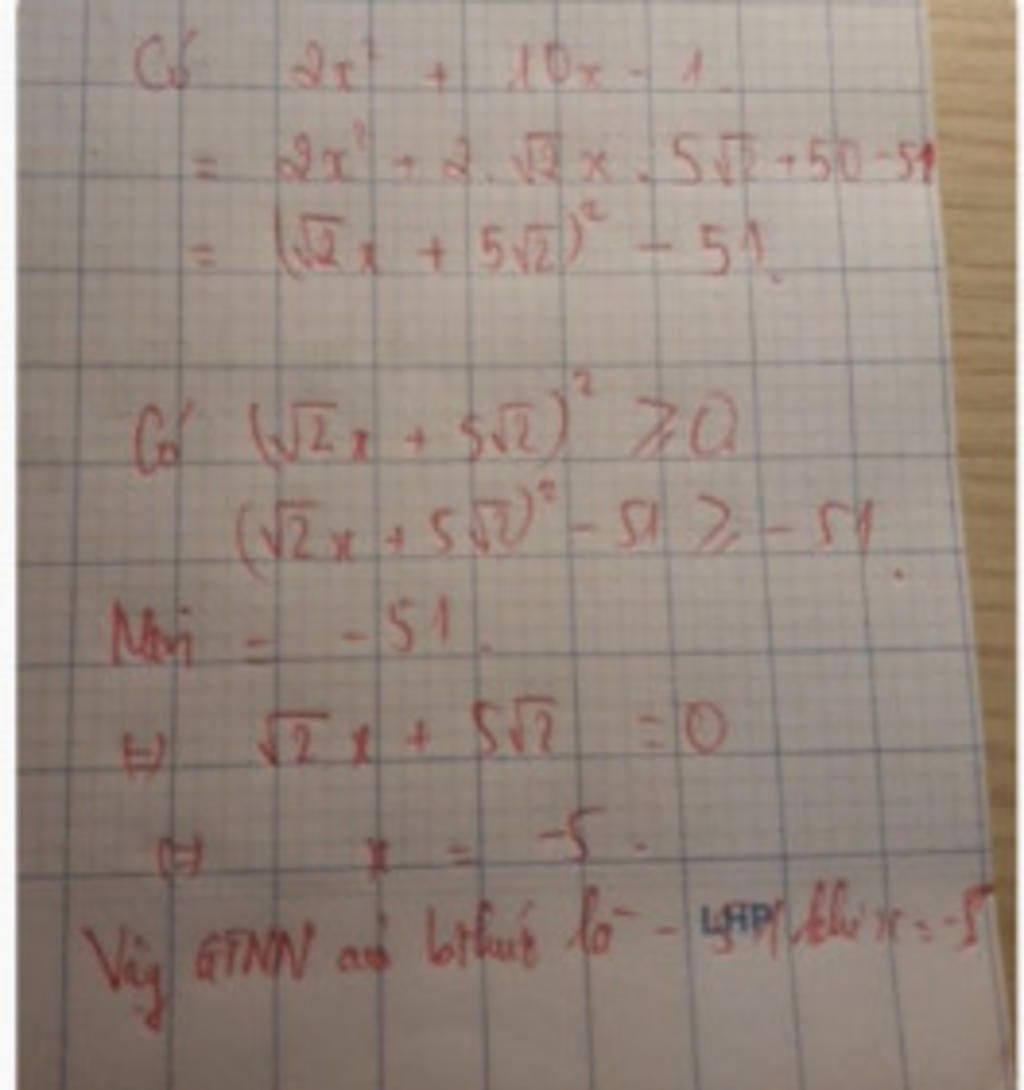 Có 2x² + 10x - 1.
= 2x² + 2.√2 x . 5√2 + 50 - 51
= (√2 x + 5√2)² - 51.
Có (√2 x + 5√2)² ⩾ 0
(√2 x + 5√2)² - 51 ⩾ - 51.
Min = - 51.
⇔ √2 x + 5√2 = 0
⇔ x = -5.
Vậy GTNN là - LHP khi x = -5